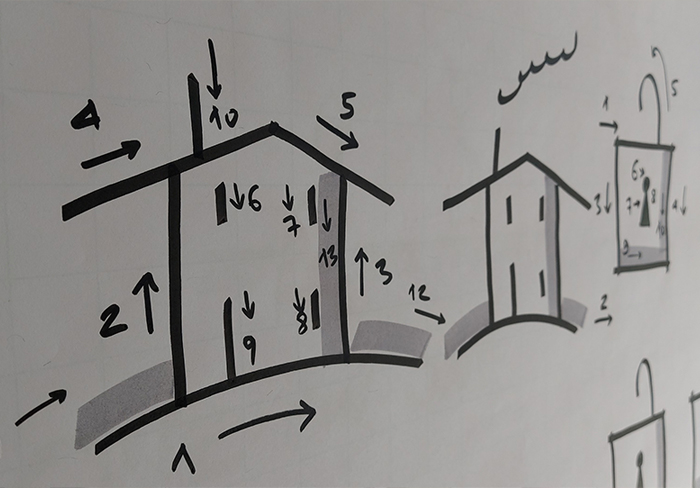 4
10
5
6
7
13
3
2
8
9
12
1
1
5
6
7
8
3
4
10
9
2